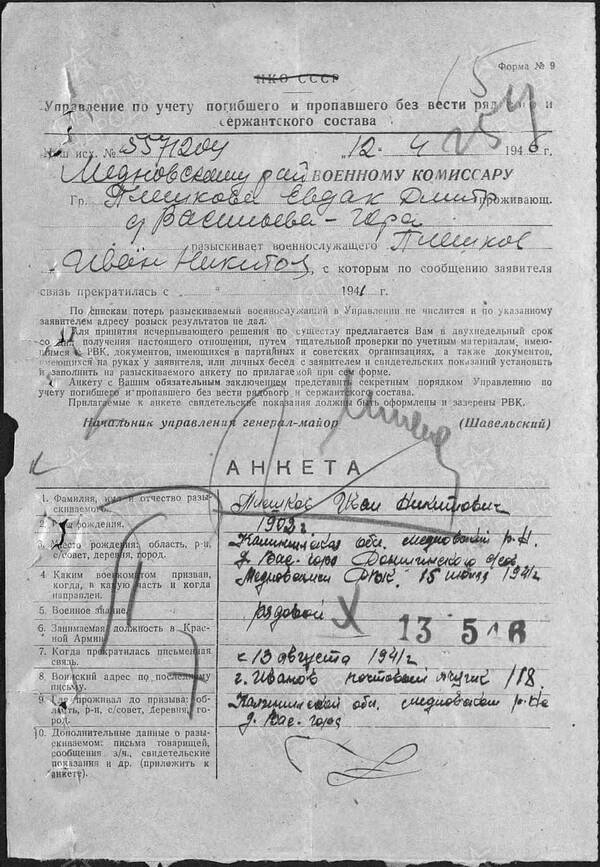 Форма № 9
НКО СССР
15
Управление по учету погибшего и пропавшего без вести рядового и
сержантского состава
Наш исх. № 557204 „12" 4 1946 г.
Медновскому рай ВОЕННОМУ КОМИССАРУ
Гр. Плешкова Евдок Дмитр проживающ.
д Васильева-гора
разыскивает военнослужащего Плешков
Иван Никитов, с которым по сообщению заявителя
связь прекратилась с „ " 1941 г.
По спискам потерь разыскиваемый военнослужащий в Управлении не числится и по указанному
заявителем адресу розыск результатов не дал.
Для принятия исчерпывающего решения по существу предлагается Вам в двухнедельный срок
со дня получения настоящего отношения, путем тщательной проверки по учетным материалам, имею-
щимся в РВК, документов, имеющихся в партийных и советских организациях, а также документов,
имеющихся на руках у заявителя, или личных бесед с заявителем и свидетельских показаний установить
и заполнить на разыскиваемого анкету по прилагаемой при сем форме.
Анкету с Вашим обязательным заключением представить секретным порядком Управлению по
учету погибшего и пропавшего без вести рядового и сержантского состава.
Прилагаемые к анкете свидетельские показания должны быть оформлены и заверены РВК.
Начальник управления генерал-майор (Шавельский)
АНКЕТА
1. Фамилия, имя и отчество разы-
скиваемого.
Плешков Иван Никитович
2. Год рождения.
1902 г
3. Место рождения: область, р-н,
с/совет, деревня, город.
Калининская обл. медновский р-н
д. Вас-гора
4 Каким военкоматом призван,
когда, в какую часть и когда
направлен.
Медновским РВК. 15 июля 1941г
5. Военное звание.
рядовой
6. Занимаемая должность в Крас-
ной Армии.
13516
7. Когда прекратилась письменная
связь.
с 13 августа 1941г
8. Воинский адрес по последнему
письму.
г. Иванов почтовый ящик 118
9. Где проживал до призыва: об-
ласть, р-н, с/совет, деревня, го-
род.
Калининской обл. медновский р-на
д. Вас-гора
10. Дополнительные данные о разы-
скиваемом: письма товарищей,
сообщения з/ч., свидетельские
показания и др. (приложить к
анкете).